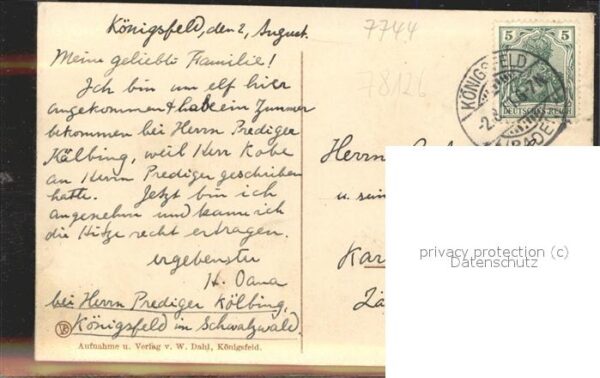 Königsfeld, den 2, August.
7744
78126
Meine geliebte Familie!
Ich bin um elf hier
angekommen + habe ein Zimmer
bekommen bei Herrn Prediger
Kölbing, weil Herr Kobe
an Herrn Prediger geschrieben
hatte. Jetzt bin ich
angenehm und kann ich
die Hitze recht ertragen.
ergebenster
H. Oana
bei Herrn Prediger Kölbing,
Königsfeld im Schwalzwald.
Aufnahme u. Verlag v. W. Dahl, Königsfeld.
5 5
DEUTSCHES REICH
KÖNIGSFELD
(BADEN)
Herrn
u. sein
Kar
privacy protection (c)
Datenschutz